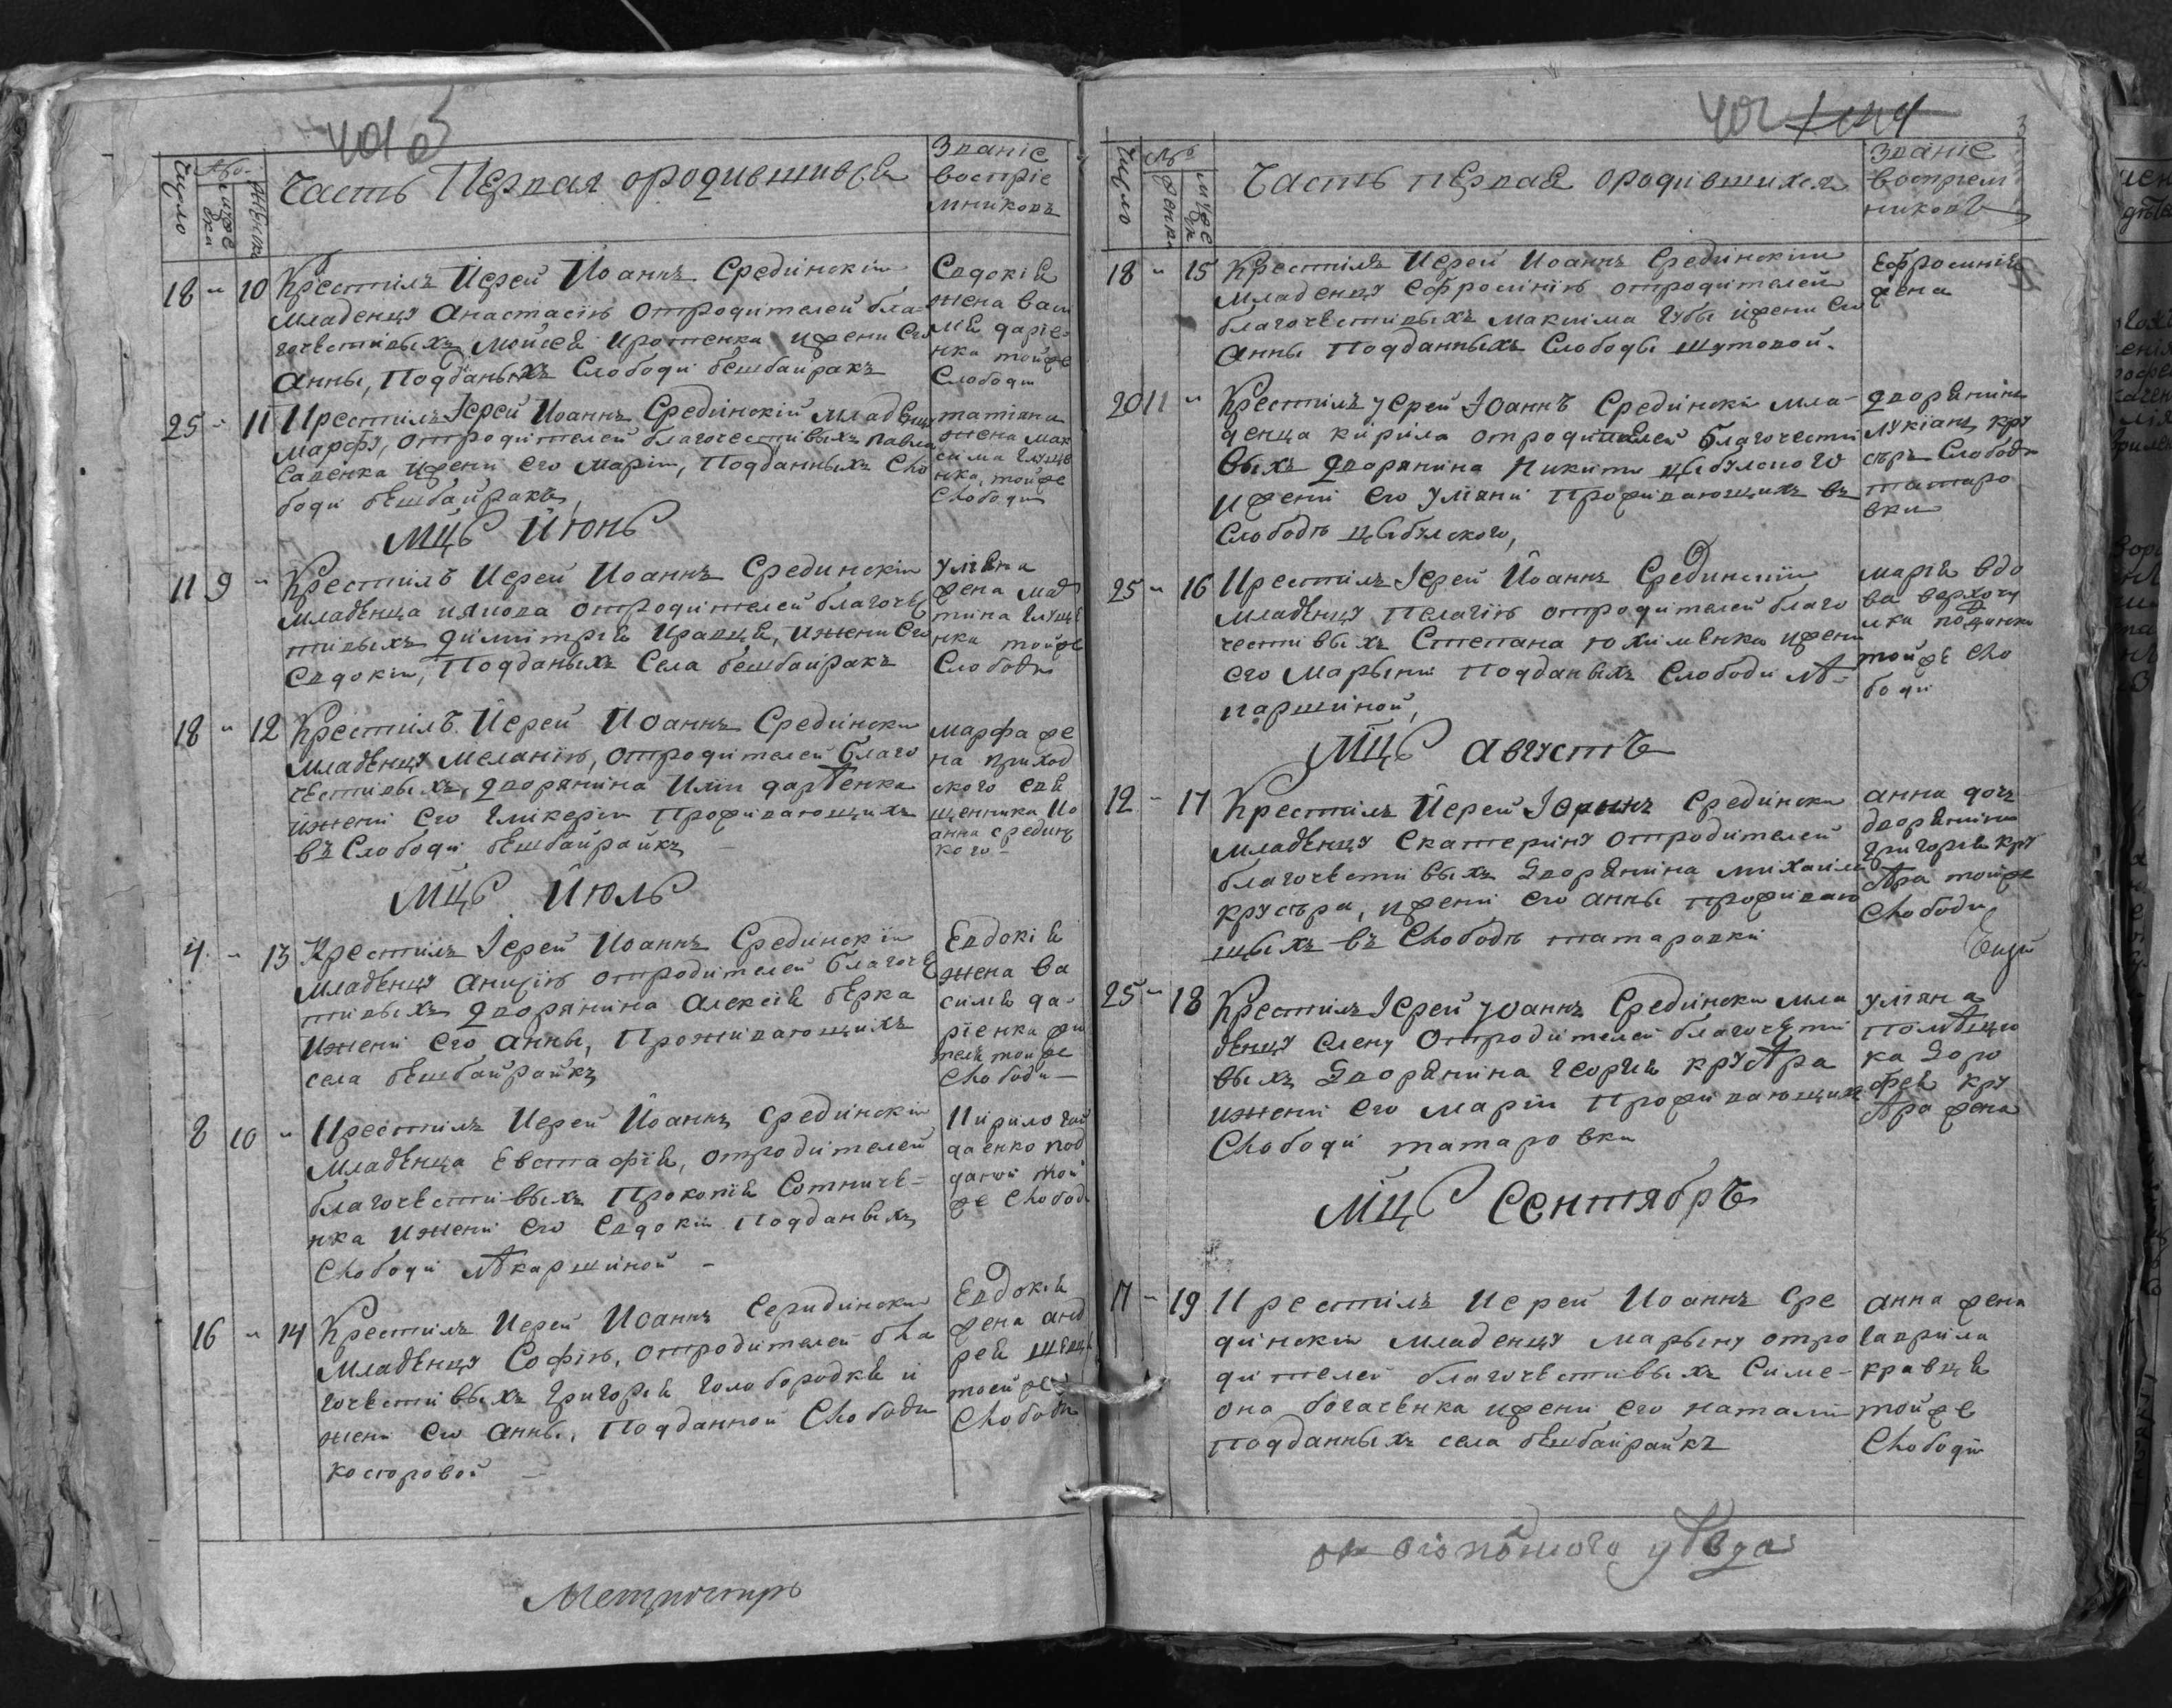 401 об
Число
№о
мужеска
женска
Часть Первая ородившихся
Званіе
воспріе
мниковъ
18 " 10 Крестилъ Іерей Иоаннъ Срединскій
младенцу Анастасію отродителей бла-
гочестивыхъ Моисея Ироненка ижени Его
Анны, Подданыхъ Слободи бешбайракъ
Евдокія
жена васи
лія даріе-
нка тойже
Слободи
25 " 11 Крестилъ Іерей Иоаннъ Срединскій младенцу
Марфу, отродителей благочестивыхъ Павла
Савенка ижени его Маріи, Подданныхъ Сло
боди бешбайракъ
татіана
жена мак
сима глуще
нка, тойже
Слободи
МЦЪ Июнь
11 9 " Крестилъ Иерей Иоаннъ Срединскіи
младенца иякова отродителей благочес
тивыхъ димитрія Кравця, ижени Его
Евдокіи, Подданыхъ Села бешбайракъ
Уліяна
жена мар
тина глуще
нка тойже
Слободи
18 " 12 Крестилъ Иерей Иоаннъ Средински
младенцу Меланію, отродителей благо
честивыхъ, дворянина Иліи дарѣенка
ижени его гликеріи Проживающихъ
въ Слободи бешбайрайкъ
марфа же
на приход
ского свя
щенника Ио
анна средин
кого
МЦЪ Июль
4 " 13 Крестилъ Іерей Иоаннъ Срединскіи
младенцу анисію отродителей благоче
тивыхъ дворянина Алексія берка
ижени его Анны, Проживающихъ
села бешбайрайкъ
Евдокія
жена ва
силія да-
ріенка жи
теля тойже
Слободи
8 10 " Крестилъ Иерей Иоаннъ Срединскіи
младенца Евстафія, отродителей
благочестивыхъ Прокопія Сотниче-
нка ижени его Евдокіи Подданыхъ
Слободи лѣкаршиной
Кирило гай
даенко под
даной той
же Слободи
16 " 14 Крестилъ Иерей Иоаннъ Серидински
младенцу Софію, отродителей бла
гочестивыхъ Григорія Голобородкя и
жени его Анны, Подданной Слободи
косюровой
Евдокія
жена анд
рея швця
тоейже
Слободи
Метристръ
402
Число
№о
женска
мужеска
Часть первая ородившихся
Званіе
воспріем
никовъ
18 " 15 Крестилъ Иерей Иоаннъ Срединскіи
младенцу Ефросинію отродителей
благочестивыхъ Максима губы ижени Его
Анны Подданныхъ Слободы шутовой.
Ефросинія
жена
20 11 " Крестилъ Іерей Іоаннъ Срединскіи мла-
денца кирила отродителей благочести
выхъ дворянина Никити цыбулского
ижени его Уліяни Проживающихъ въ
Слободѣ цыбулского,
дворянинъ
лукіанъ кру
съръ Слободи
татаро
вки
25 " 16 Крестилъ Іерей Иоаннъ Срединскіи
младенцу Пелагію отродителей благо
честивыхъ Степана юхименка ижени
его Марьини Подданыхъ Слободи лѣ-
каршиной,
марія вдо
ва
тойже Сло
боди
МЦЪ августъ
12 " 17 Крестилъ Иерей Іоаннъ Средински
младенцу Екатерину отродителей
благочестивыхъ Дворянина михаила
крусъра, ижени его анны проживаю
щыхъ въ Слободѣ татаровки
анна дочь
дворянина
Григорія кру
сѣра тойже
Слободи,
25 " 18 Крестилъ Іерей Іоаннъ Срединскіи мла
денцу Елену отродителей благочести
выхъ Дворянина георгія крусѣра
ижени его маріи Проживающихъ
Слободи татаровки
уліяна
помѣщи
ка Доро
фея кру
сѣра жена
МЦЪ Сентябръ
17 " 19 Крестилъ Иерей Иоаннъ Сре
динскіи младенцу Марьину отро
дителей благочестивыхъ Симе-
она богаченка ижени его натали
подданныхъ села бешбайрайкъ
анна жена
гаврила
кравця
тойже
Слободи
уѣзда